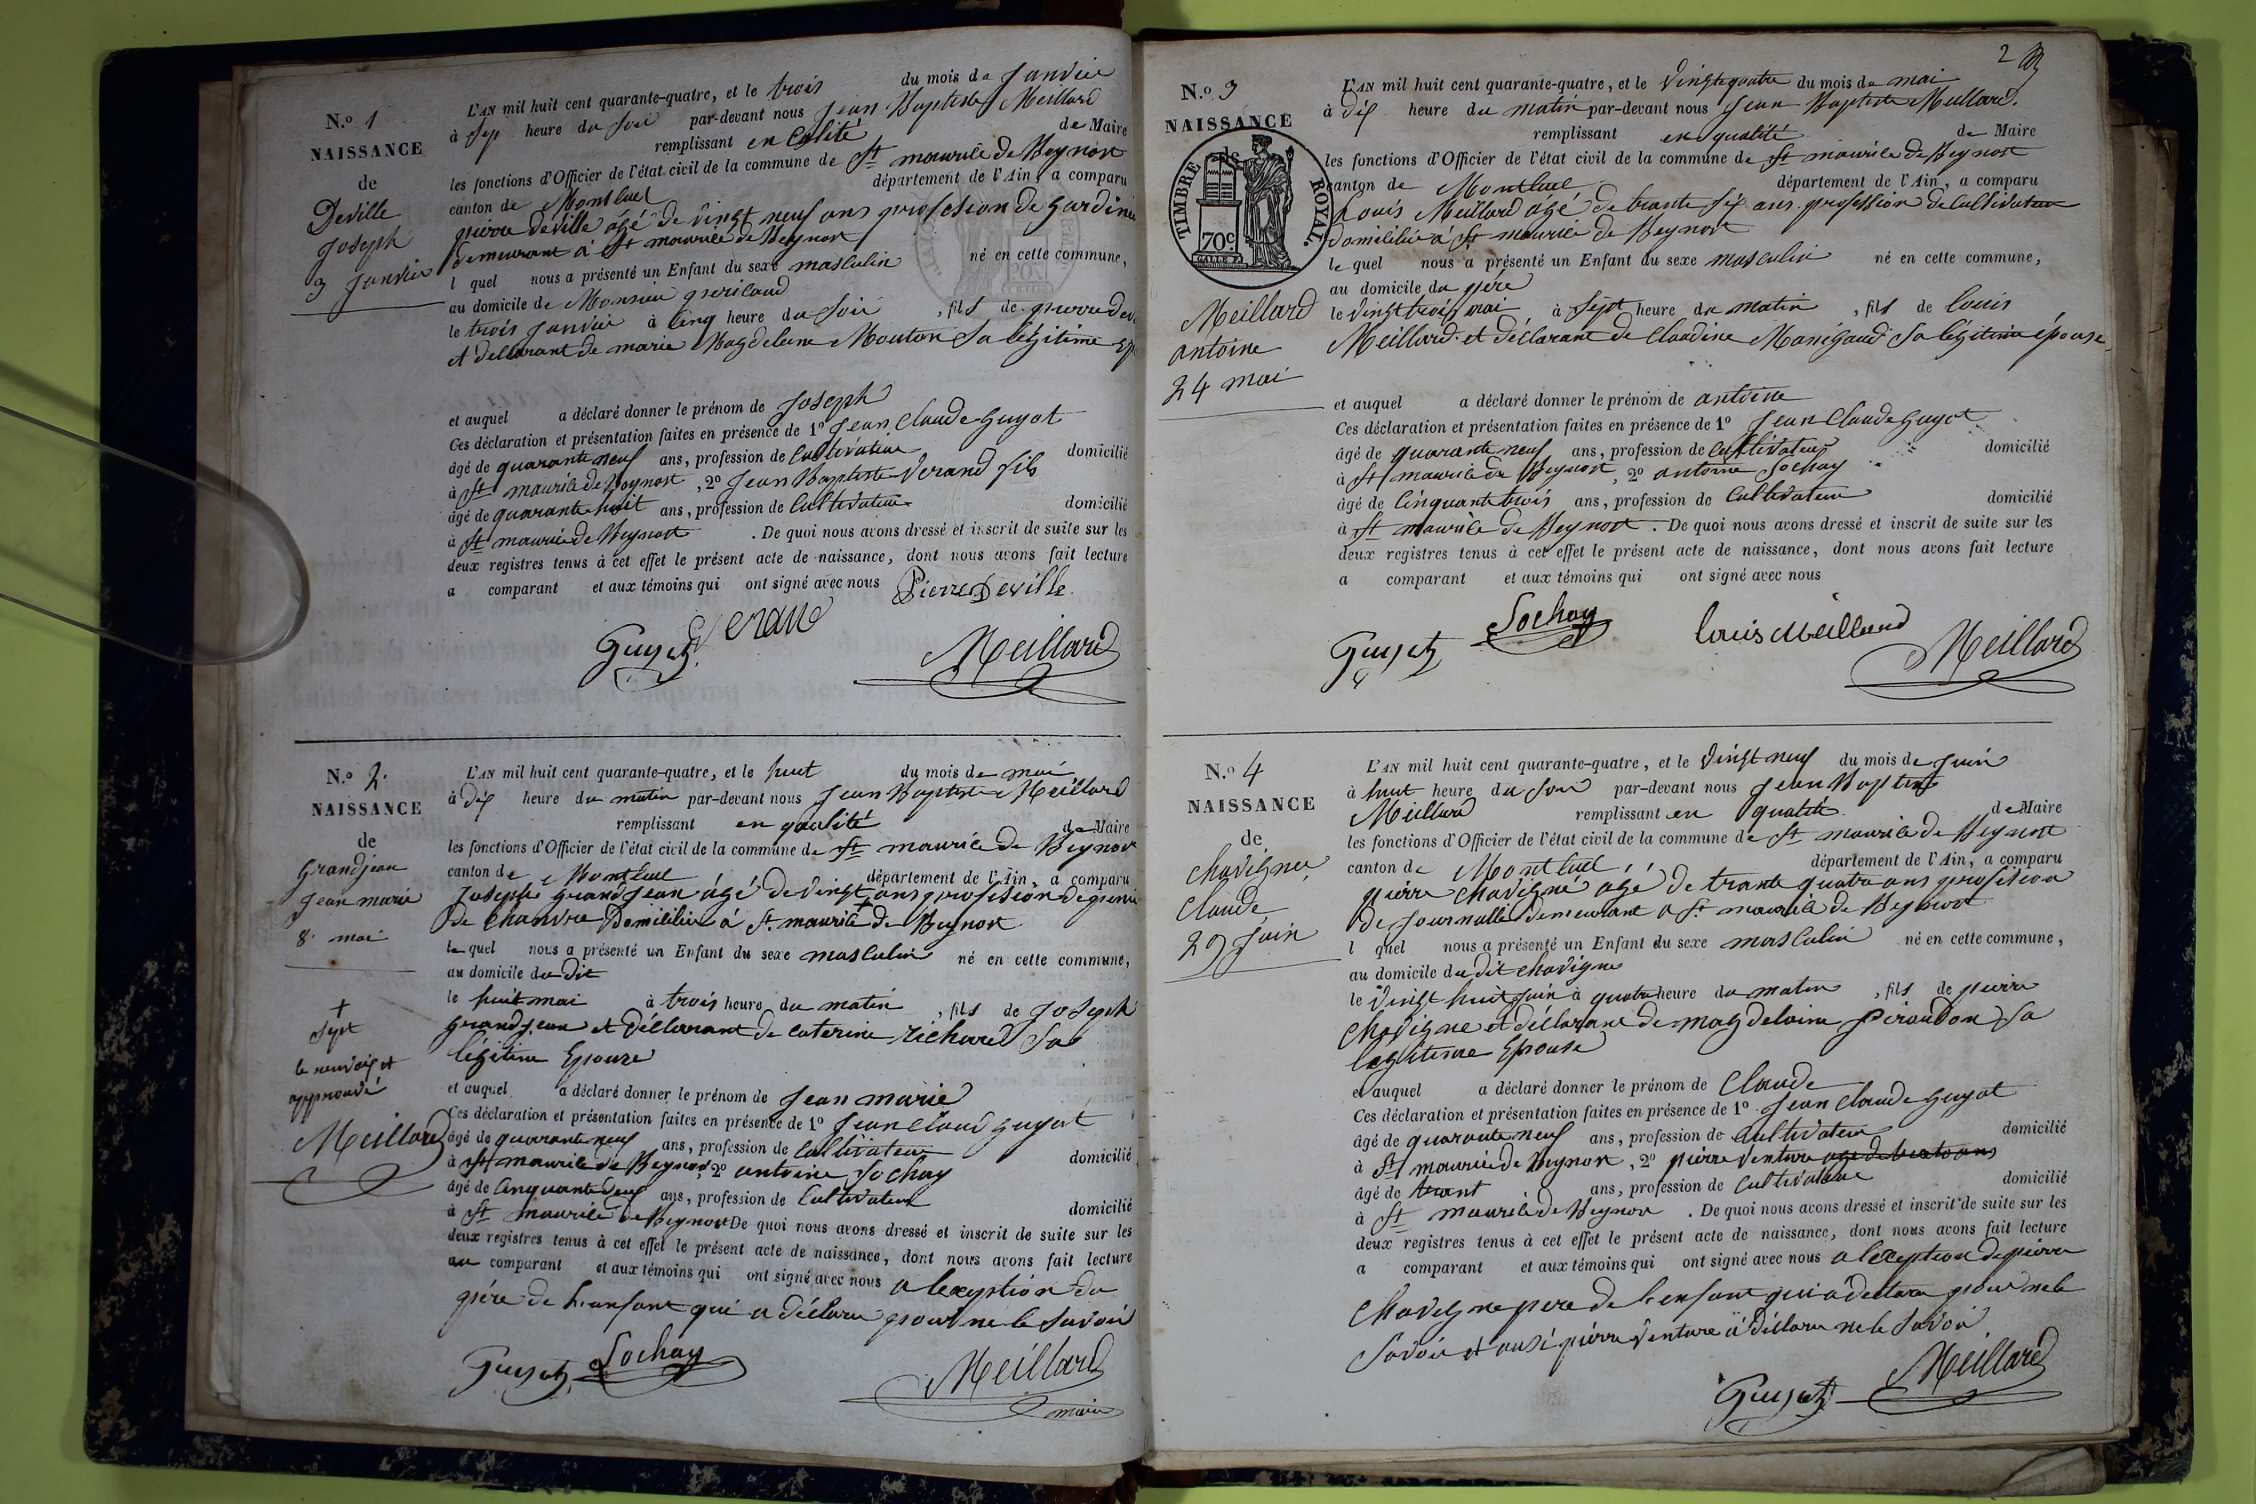 N.o 1
NAISSANCE
de
Deville
Joseph
3 janvier
L'AN mil huit cent quarante-quatre, et le trois du mois de Janvier
à sep heure du soir par-devant nous Jean Baptiste Meillard
remplissant en Calité de Maire
les fonctions d'Officier de l'état civil de la commune de St maurice de Beynost
canton de Montluel département de l'Ain, a comparu
pierre deville âgé de vingt neuf ans profession de Jardinier
demeurant à St maurice de Beynost
l quel nous a présenté un Enfant du sexe masculin né en cette commune,
au domicile de Monsieur
le trois janvier à Cinq heure du soir , fils de pierre
et declarant de marie Magdelene Mouton Sa légitime
et auquel a déclaré donner le prénom de Joseph
Ces déclaration et présentation faites en présence de 1o Jean Claude Guyot
âgé de quarante neuf ans, profession de Cultivateur domicilié
à St maurice de Beynost , 2o Jean Baptiste Verand fils
âgé de quarante huit ans, profession de Cultivateur domicilié
à St maurice de Beynost . De quoi nous avons dressé et inscrit de suite sur les
deux registres tenus à cet effet le présent acte de naissance, dont nous avons fait lecture
a comparant et aux témoins qui ont signé avec nous Pierre Deville
Guyot Verand Meillard
N.o 2.
NAISSANCE
de
Grandjean
Jean marie
8. mai
+
Sept
le renvoi et
approuvé
Meillard
L'AN mil huit cent quarante-quatre, et le huit du mois de mai
à dix heure du matin par-devant nous Jean Baptiste Meillard
remplissant en qualité de Maire
les fonctions d'Officier de l'état civil de la commune de St maurice de Beynost
canton de Montluel département de l'Ain, a comparu
Joseph Grandjean âgé de vingt + ans profession de
de chanvre Domicilier à St maurice de Beynost
le quel nous a présenté un Enfant du sexe masculin né en cette commune,
au domicile du dit
le huit mai à trois heure du matin , fils de Joseph
Grandjean et Déclarant de caterine richard Sa
légitime Epouse
et auquel a déclaré donner le prénom de Jean marie
Ces déclaration et présentation faites en présence de 1o Jean Claud Guyot
âgé de quarante neuf ans, profession de Cultivateur domicilié
à St maurice de Beynost, 2o antoine Sochay
âgé de Cinquante deux ans, profession de Cultivateur domicilié
à St maurice de Beynost De quoi nous avons dressé et inscrit de suite sur les
deux registres tenus à cet effet le présent acte de naissance, dont nous avons fait lecture
au comparant et aux témoins qui ont signé avec nous a lexception du
père de l'enfant qui a déclaré pour ne le Savoir
Guyot Sochay Meillard
maire
2
N.o 3
NAISSANCE
de
TIMBRE ROYAL.
70c.
Meillard
antoine
24 mai
L'AN mil huit cent quarante-quatre, et le Vingt quatre du mois de mai
à dix heure du matin par-devant nous Jean Baptiste Meillard.
remplissant en qualité de Maire
les fonctions d'Officier de l'état civil de la commune de St maurice de Beynost
canton de Montluel département de l'Ain, a comparu
Louis Meillard âgé de trante six ans profession de Cultivateur
domicilié à St maurice de Beynost
le quel nous a présenté un Enfant du sexe masculin né en cette commune,
au domicile du père
le Vingt trois mai à Sept heure du matin , fils de louis
Meillard et déclarant de Claudine Manigand Sa légitime épouse
et auquel a déclaré donner le prénom de antoine
Ces déclaration et présentation faites en présence de 1o Jean Claude Guyot
âgé de quarante neuf ans, profession de Cultivateur domicilié
à St maurice de Beynost, 2o antoine Sochay
âgé de Cinquante trois ans, profession de Cultivateur domicilié
à St maurice de Beynost . De quoi nous avons dressé et inscrit de suite sur les
deux registres tenus à cet effet le présent acte de naissance, dont nous avons fait lecture
a comparant et aux témoins qui ont signé avec nous
Guyot Sochay louis Meillard Meillard
N.o 4
NAISSANCE
de
Chavigne
Claude
29 Juin
L'AN mil huit cent quarante-quatre, et le Vingt neuf du mois de Juin
à huit heure du Soir par-devant nous Jean Baptiste
Meillard remplissant en qualité de Maire
les fonctions d'Officier de l'état civil de la commune de St maurice de Beynost
canton de Montluel département de l'Ain, a comparu
pierre Chavigné âgé de trante quatre ans profession
de Journallier demeurant a St maurice de Beynost
l quel nous a présenté un Enfant du sexe masculin né en cette commune,
au domicile du dit chavigne
le Vingt huit Juin à quatre heure du matin , fils de pierre
Chavigne et déclarant de magdelaine piroudon Sa
legitime Epouse
et auquel a déclaré donner le prénom de Claude
Ces déclaration et présentation faites en présence de 1o Jean Claude Guyot
âgé de quarante neuf ans, profession de Cultivateur domicilié
à St maurice de Beynost, 2o pierre Venture age de trante ans
âgé de trant ans, profession de Cultivateur domicilié
à St maurice de Beynost . De quoi nous avons dressé et inscrit de suite sur les
deux registres tenus à cet effet le présent acte de naissance, dont nous avons fait lecture
a comparant et aux témoins qui ont signé avec nous a lexception de pierre
Chavigne pere de l'enfant qui a declaré pour ne le
Savoir et ausi pierre Venture a déclaré ne le Savoir
Guyot Meillard